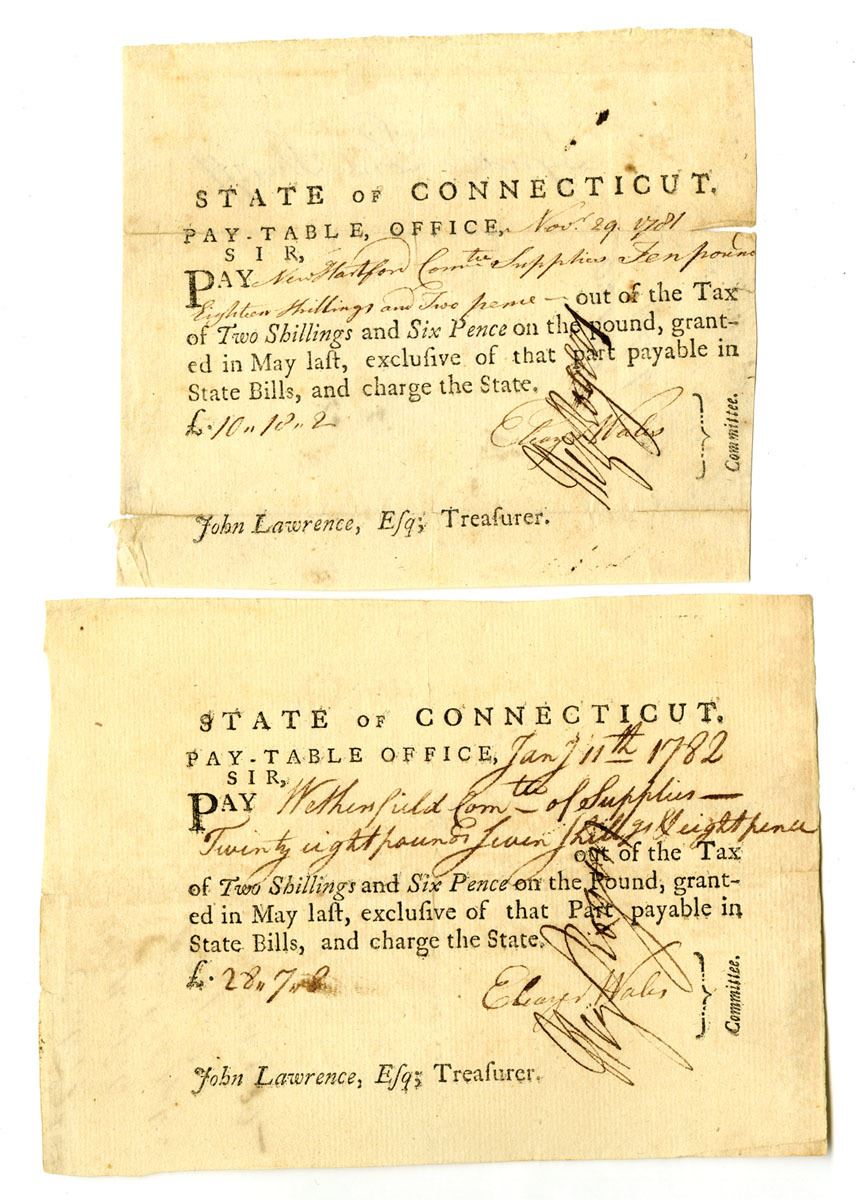 STATE OF CONNECTICUT.
PAY-TABLE, OFFICE, Novr. 29. 1781
SIR,
PAY New Hartford Comtee Supplies Ten pound
Eighteen Shillings and Two pence — out of the Tax
of Two Shillings and Six Pence on the pound, grant-
ed in May laſt, excluſive of that part payable in
State Bills, and charge the State.
£. 10 " 18 " 2
Eleazer Wales
Committee.
John Lawrence, Eſq; Treaſurer.
STATE OF CONNECTICUT.
PAY-TABLE OFFICE, Jany 11th 1782
SIR,
PAY Wethersfield Comtee of Supplies —
Twenty eight pounds Seven Shillgs & eight pence
out of the Tax
of Two Shillings and Six Pence on the Pound, grant-
ed in May laſt, excluſive of that Part payable in
State Bills, and charge the State.
£. 28 " 7 " 8
Eleazer Wales
Committee.
John Lawrence, Eſq; Treaſurer.